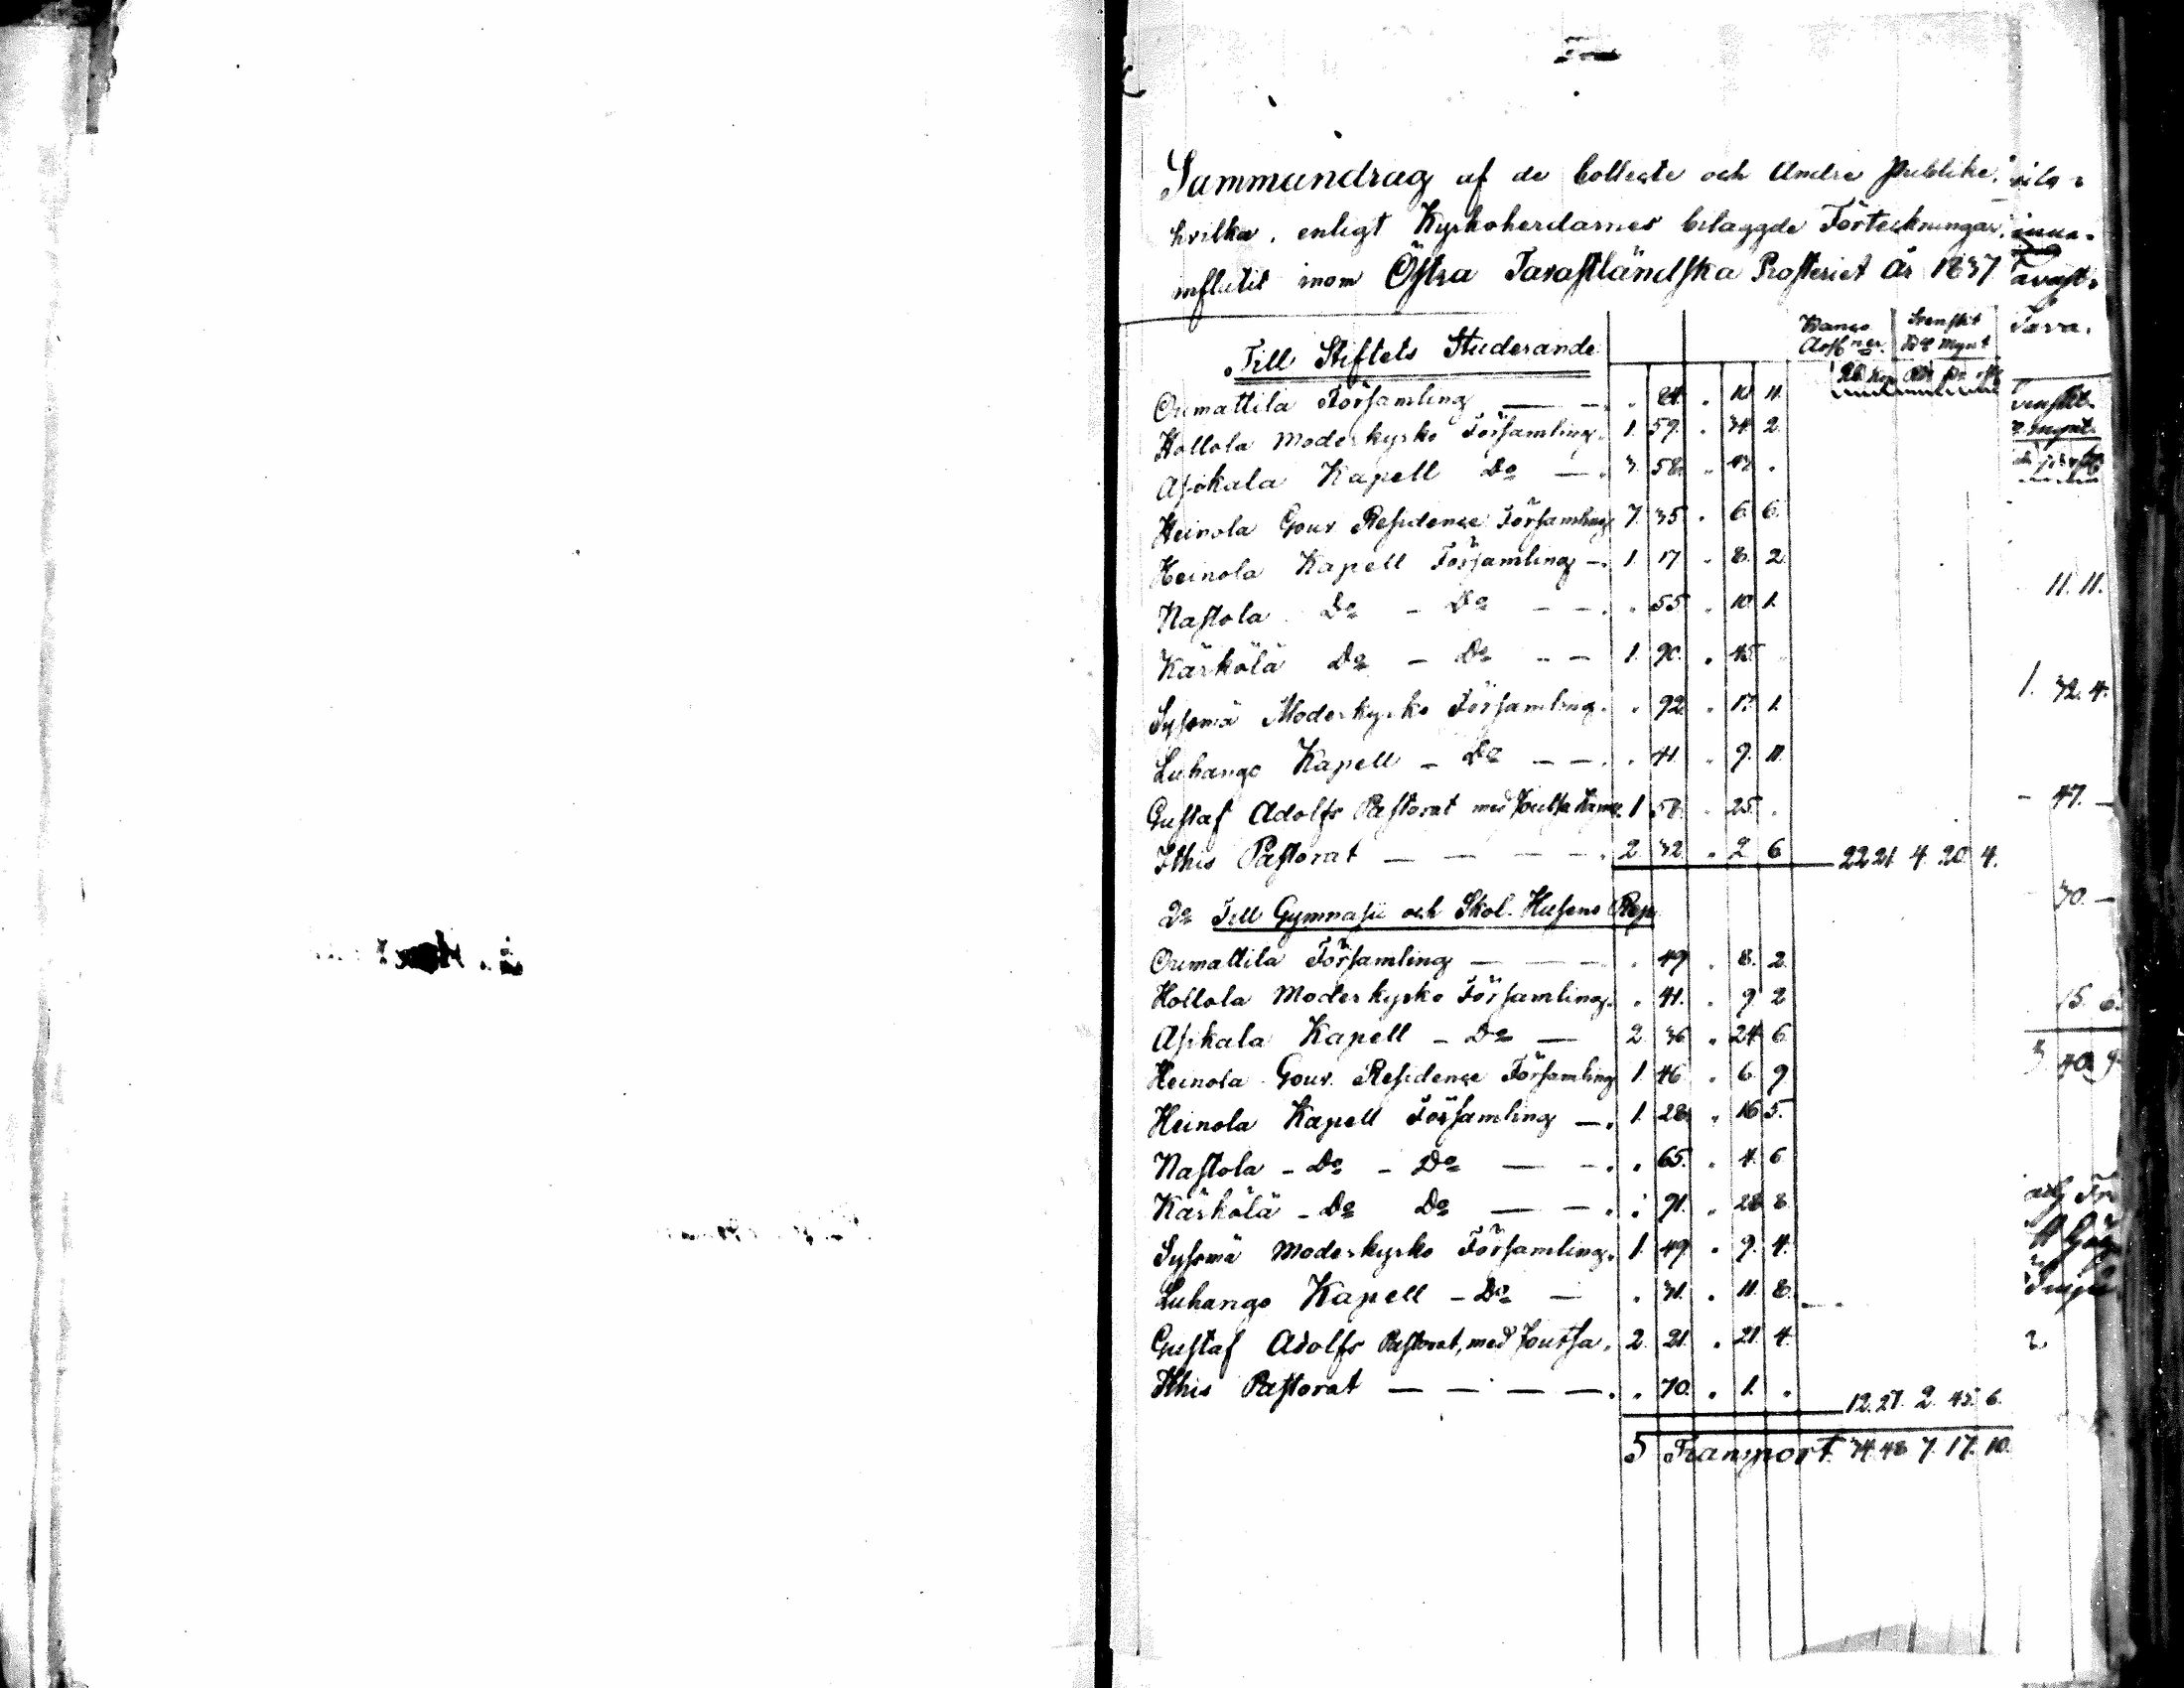 Sammandrag af de Collecte och Andre publike
hvilka, enligt Kyrkoherdarnes bilaggde Förteckningar,
influtit inom Östra Tavastländska Prosteriet År 1837
Till Stiftets Studerande
Banco Ass. ner. Svenskt Rg Mynt
Orimattila Församling — . 24. . 10 11.
Hollola Moderkyrko Församling. 1. 59. . 34. 2.
Asikala Kapell Do — . 3. 58. . 43. .
Heinola Gouv. Residence Församling 7. 35 . 6. 6.
Heinola Kapell Församling — . 1. 17 . 8. 2.
Nastola Do - Do — — . . 55 . 10. 1.
Kärkölä Do — Do — 1. 90. . 45.
Sysmä Moderkyrko Församling. . 92. . 17. 1.
Luhango Kapell — Do — — . . 41. . 9. 11.
Gustaf Adolfs Pastorat med Joutsa 1 58. . 25. .
Ithis Pastorat — — — — . 2. 32 . 2 6 — 22 21 4. 20. 4.
2o Till Gymnasii och Skol. Husens Rep.
Orimattila Församling — — — . 49 . 8. 2.
Hollola Moderkyrko Församling. . 41. . 9 2
Asikala Kapell — Do — 2. 36 . 24 6.
Heinola Gouv. Residence Församling 1. 46 . 6. 9
Heinola Kapell Församling — . 1. 28. . 16 5.
Nastola - Do - Do — - . . 65. . 4. 6
Kärkölä - Do Do — — . . 91. . 28 8.
Sysmä Moderkyrko Församling. 1. 49. . 9. 4.
Luhango Kapell — Do — . 31. . 11. 8.
Gustaf Adolfs Pastorat, med Joutsa. 2. 21. . 21. 4.
Ithis Pastorat — — — — . . 70. . 1. . — 12. 27. 2. 45. 6.
Transport. 34. 48 7. 17. 10.
11. 11.
1. 32. 4.
- 47. —
- 30. —
15. 6.
3 40. 9.